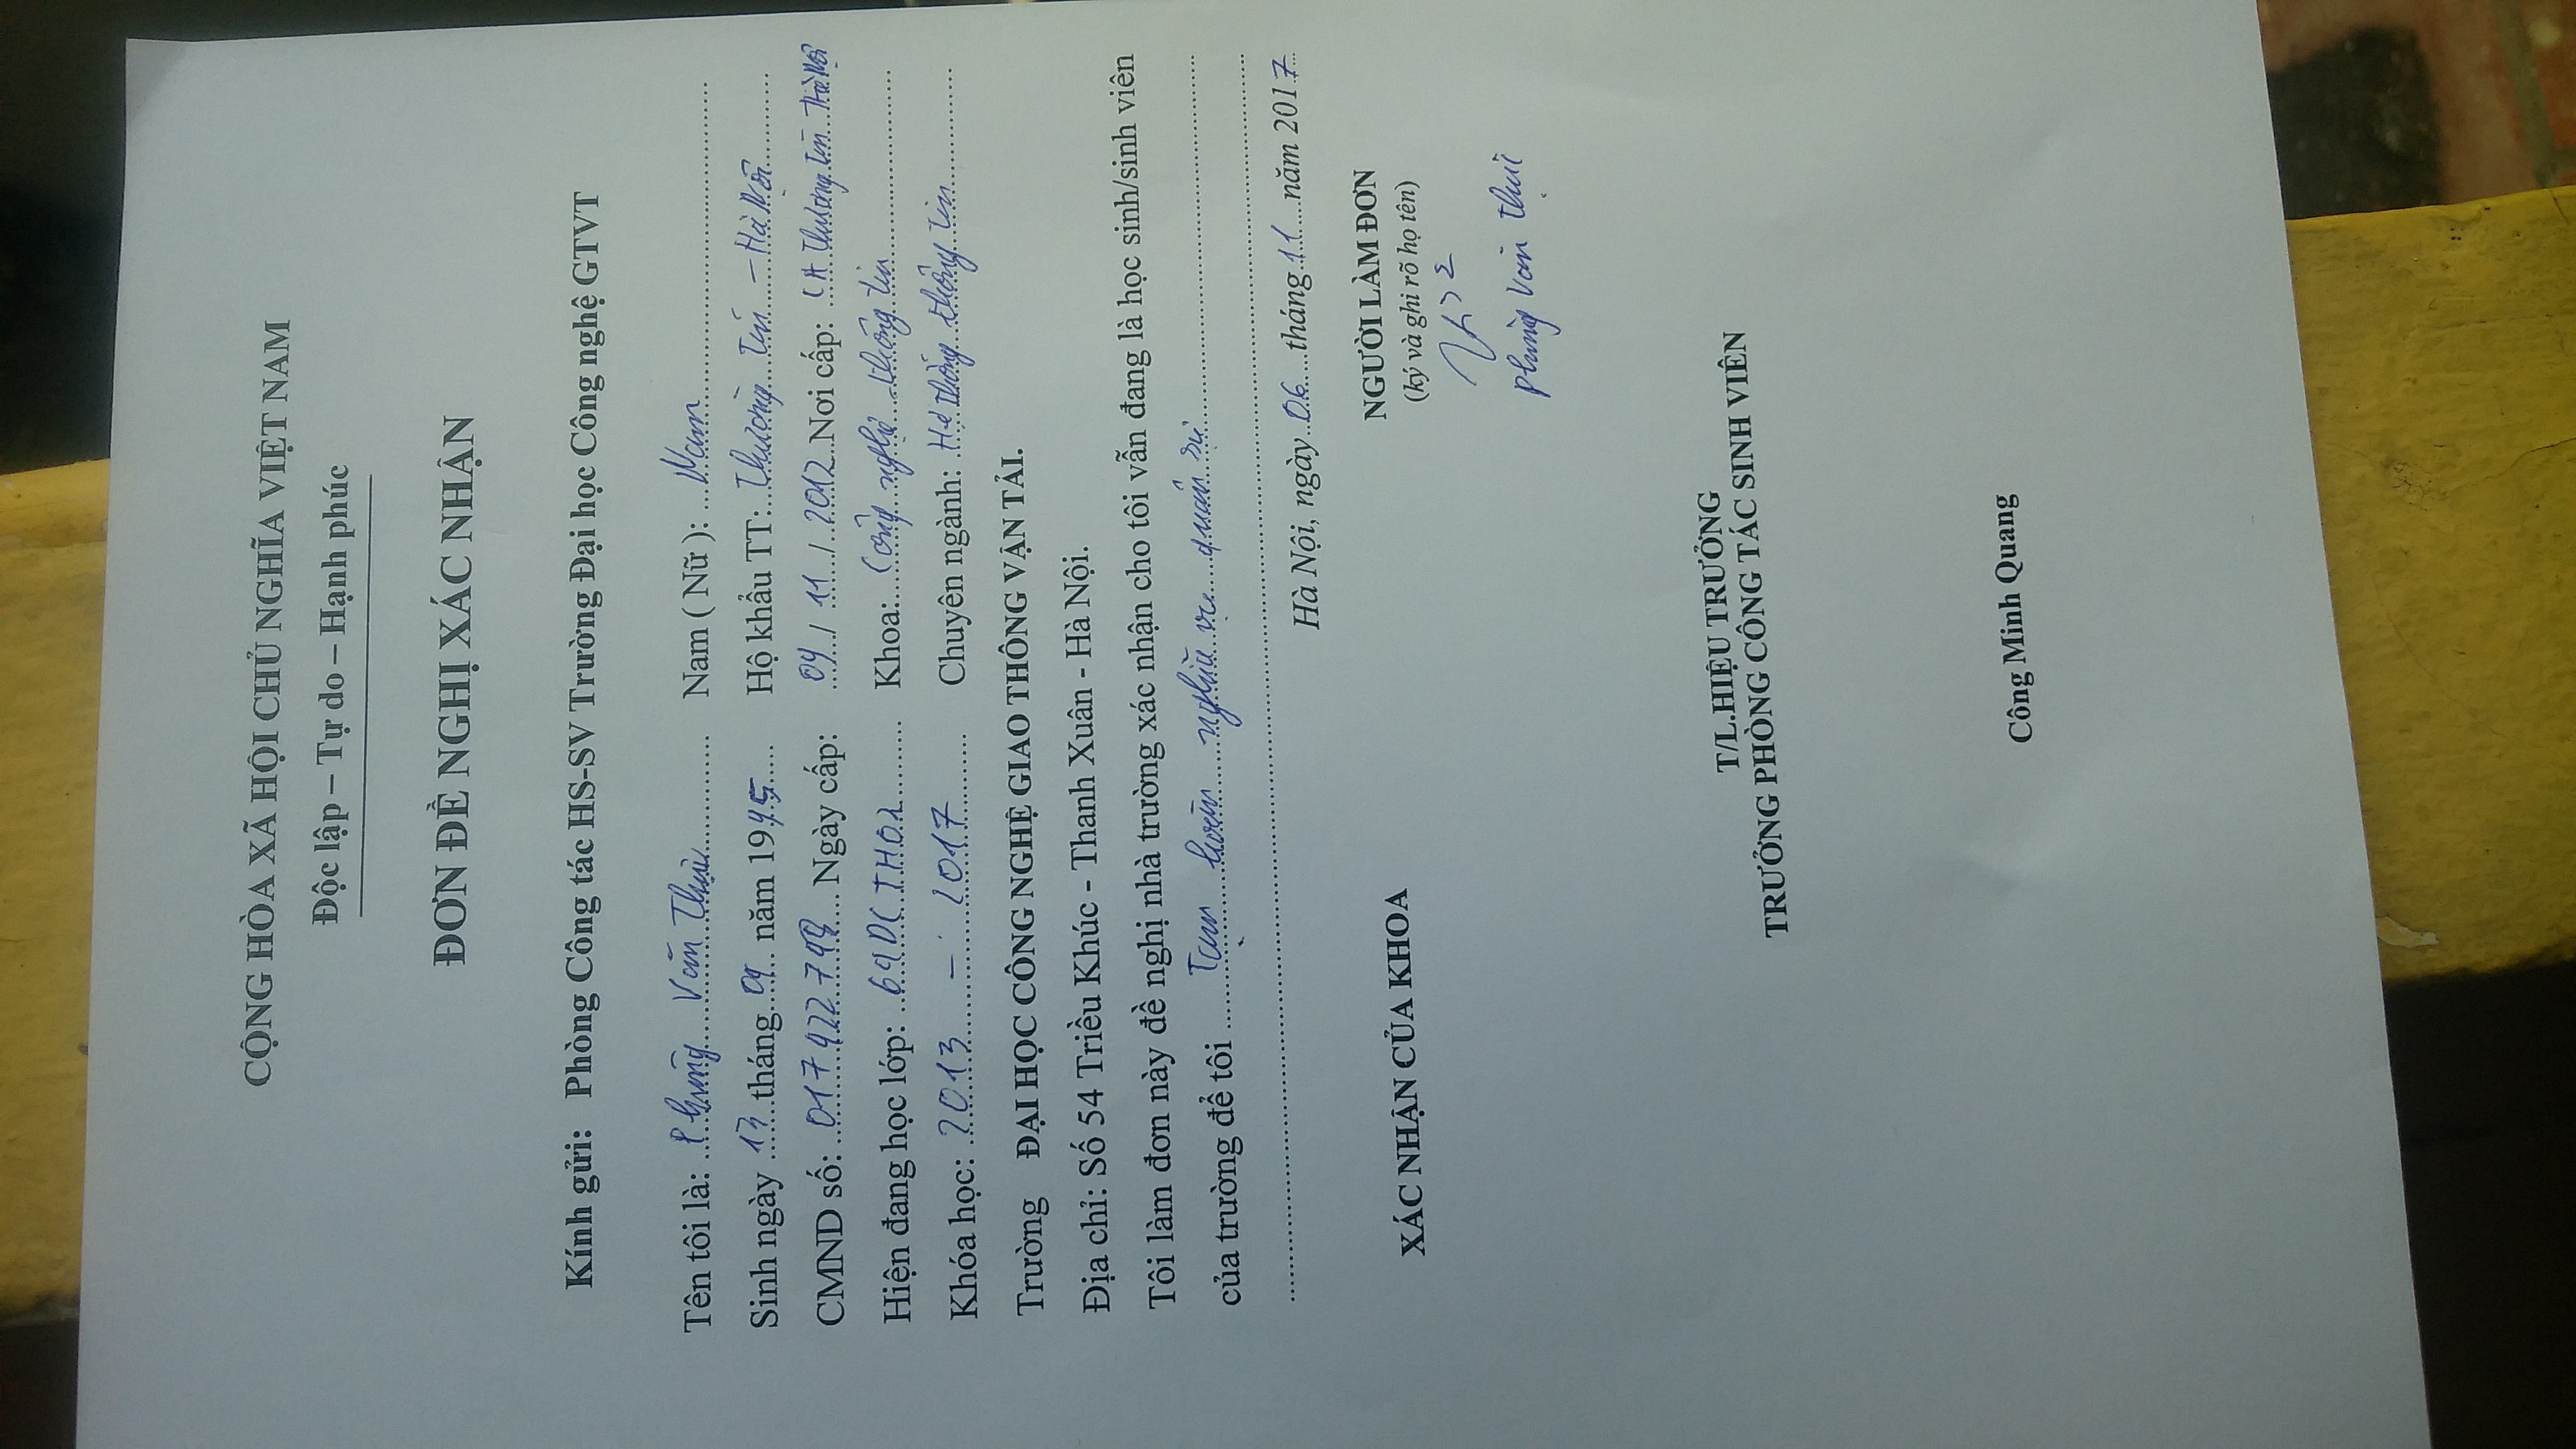 CỘNG HÒA XÃ HỘI CHỦ NGHĨA VIỆT NAM
Độc lập – Tự do – Hạnh phúc
ĐƠN ĐỀ NGHỊ XÁC NHẬN
Kính gửi: Phòng Công tác HS-SV Trường Đại học Công nghệ GTVT
Tên tôi là: Phùng Văn Nam ( Nữ ): Nam
Sinh ngày 13 tháng 09 năm 1995 Hộ khẩu TT: Thường Tín - Hà Nội
CMND số: Ngày cấp: 09 / 11 / 2012 Nơi cấp: CA Thường Tín Hà Nội
Hiện đang học lớp: Khoa: Công nghệ thông tin
Khóa học: 2013 - 2017 Chuyên ngành: Hệ thống thông tin
Trường ĐẠI HỌC CÔNG NGHỆ GIAO THÔNG VẬN TẢI.
Địa chỉ: Số 54 Triều Khúc - Thanh Xuân - Hà Nội.
Tôi làm đơn này đề nghị nhà trường xác nhận cho tôi vẫn đang là học sinh/sinh viên
của trường để tôi Tạm hoãn nghĩa vụ quân sự
Hà Nội, ngày 06 tháng 11 năm 2017
NGƯỜI LÀM ĐƠN
(ký và ghi rõ họ tên)
Phùng Văn
XÁC NHẬN CỦA KHOA
T/L.HIỆU TRƯỞNG
TRƯỞNG PHÒNG CÔNG TÁC SINH VIÊN
Công Minh Quang